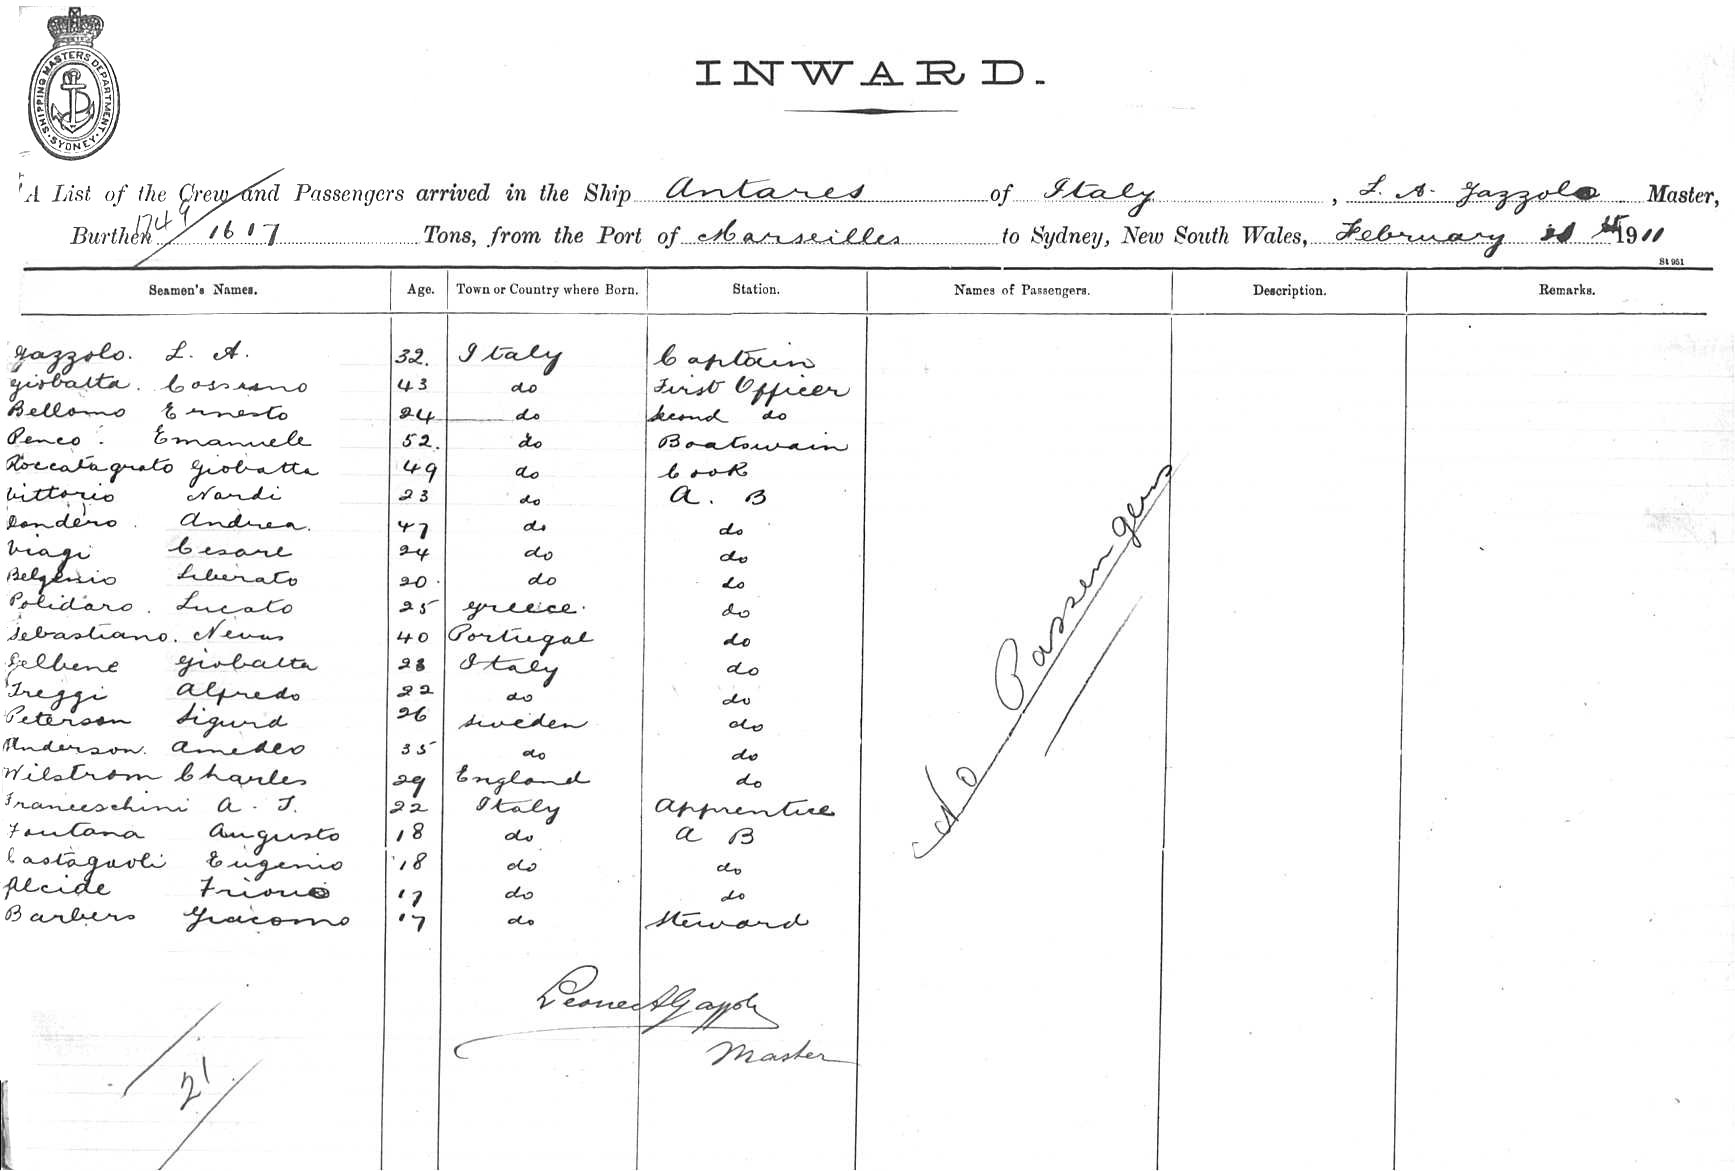 SHIPPING MASTERS DEPARTMENT · SYDNEY ·
INWARD.
A List of the Crew and Passengers arrived in the Ship Antares of Italy, L. A. Gazzolo Master,
1749
Burthen 1617 Tons, from the Port of Marseilles to Sydney, New South Wales, February 1911
St 951
Seamen's Names. Age. Town or Country where Born. Station. Names of Passengers. Description. Remarks.
Gazzolo. L. A. 32. Italy Captain
Giobatta. 43 do First Officer
Bellomo Ernesto 24 do Second do
Penco. Emanuele 52. do Boatswain
Roccatagrato Giobatta 49 do Cook
Vittorio Nardi 23 do A. B
Dondero. Andrea. 47 do do
Viagi Cesare 24 do do
Belgenio Liberato 20. do do
Polidaro. Lucato 25 Greece. do
Sebastiano. 40 Portugal do
Gelbene Giobatta 23 Italy do
Treggi Alfredo 22 do do
Peterson Sigurd 26 Sweden do
Anderson. Amedeo 35 do do
Wilstrom Charles 29 England do
Franceschini A. T. 22 Italy Apprentice
Fontana Augusto 18 do A B
Castagnoli Eugenio 18 do do
Alcide 17 do do
Barbero Giacomo 17 do Steward
No Passengers
Master
21